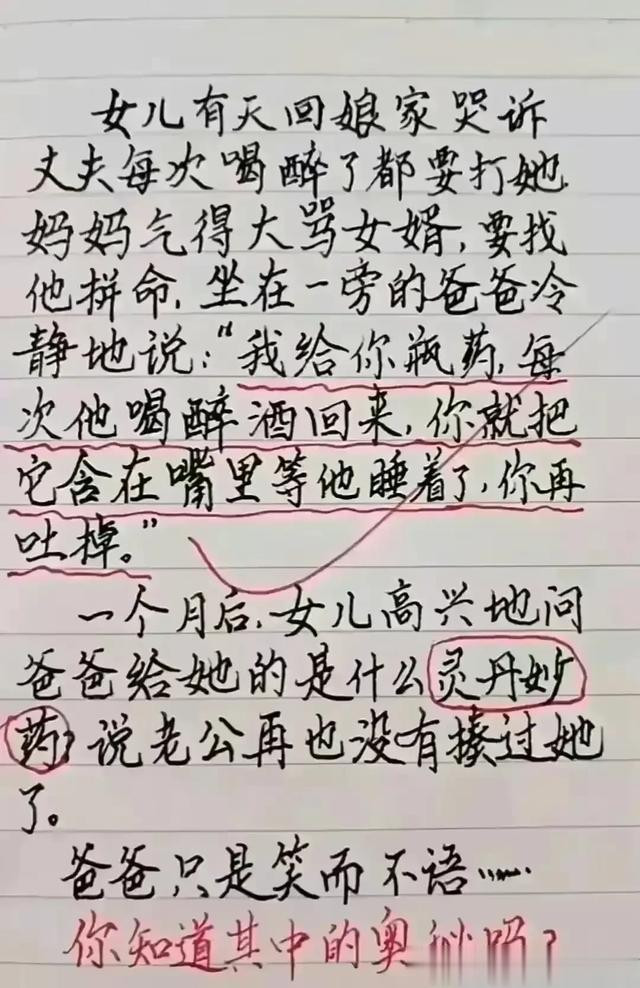 女儿有天回娘家哭诉
丈夫每次喝醉了都要打她
妈妈气得大骂女婿,要找
他拼命,坐在一旁的爸爸冷
静地说:“我给你瓶药,每
次他喝醉酒回来,你就把
它含在嘴里等他睡着了,你再
吐掉。”
一个月后,女儿高兴地问
爸爸给她的是什么灵丹妙
药?说老公再也没有揍过她
了。
爸爸只是笑而不语……
你知道其中的奥秘吗?